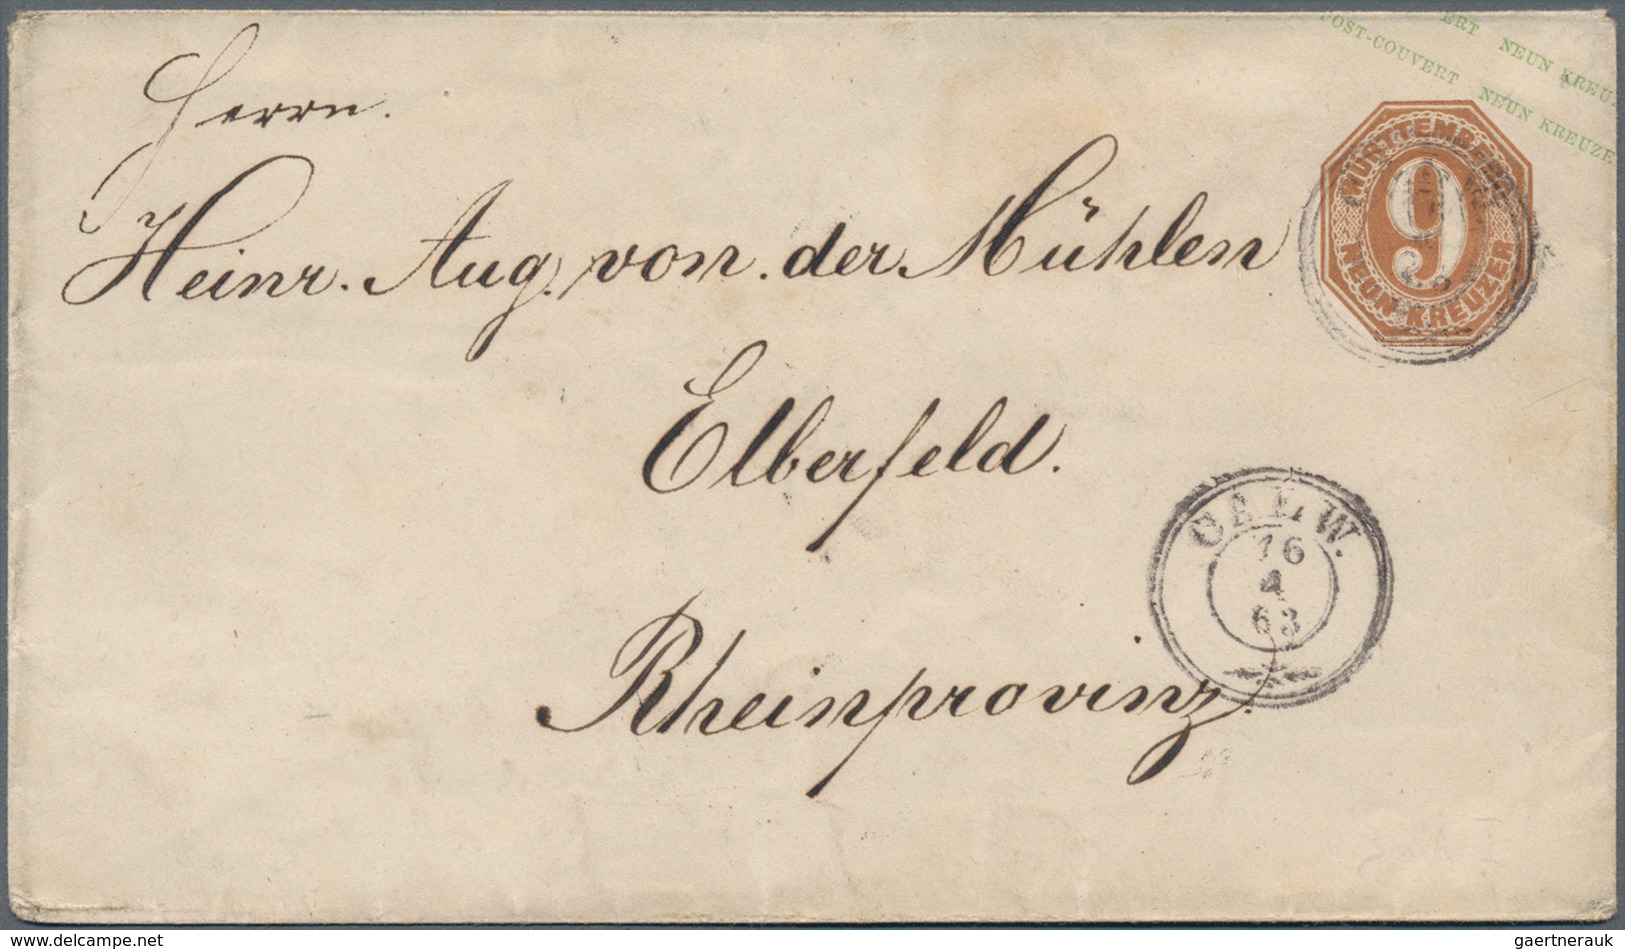 ERT NEUN KREUZ
POST-COUVERT NEUN KREUZE
WÜRTTEMBERG
9
NEUN KREUZER
Herrn.
Heinr. Aug. von der Mühlen
Elberfeld.
CALW.
16
4
63
Rheinprovinz.
delcampe.net
gaertnerauk